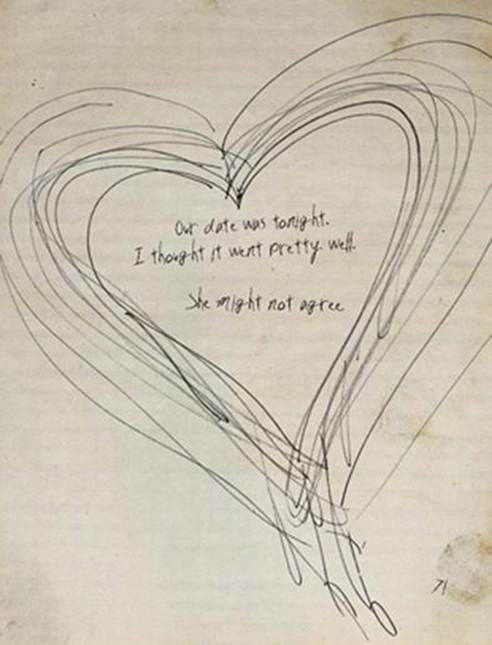 Our date was tonight.
I thought it went pretty well.
She might not agree
71